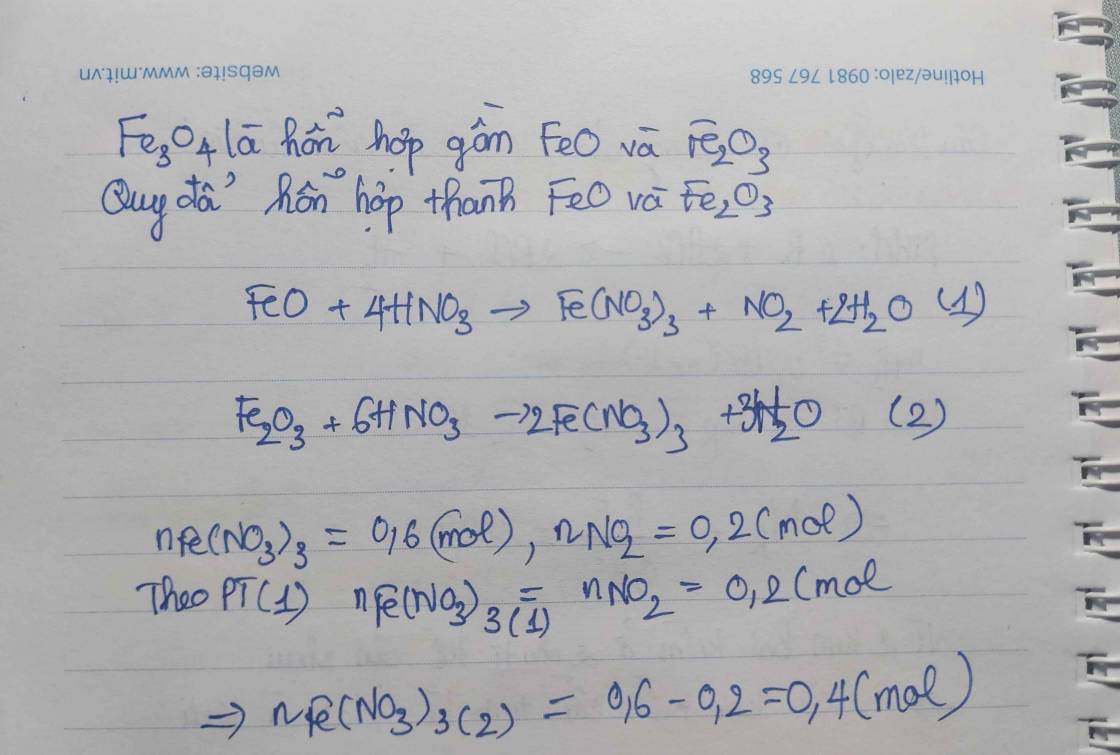 website: www.mit.vn Hotline/zalo: 0981 767 568
Fe₃O₄ là hỗn hợp gồm FeO và Fe₂O₃
Quy đổi hỗn hợp thành FeO và Fe₂O₃
FeO + 4HNO₃ → Fe(NO₃)₃ + NO₂ + 2H₂O (1)
Fe₂O₃ + 6HNO₃ → 2Fe(NO₃)₃ + 3H₂O (2)
nFe(NO₃)₃ = 0,6 (mol), nNO₂ = 0,2 (mol)
Theo PT(1) nFe(NO₃)₃(1) = nNO₂ = 0,2 (mol
⇒ nFe(NO₃)₃(2) = 0,6 - 0,2 = 0,4 (mol)